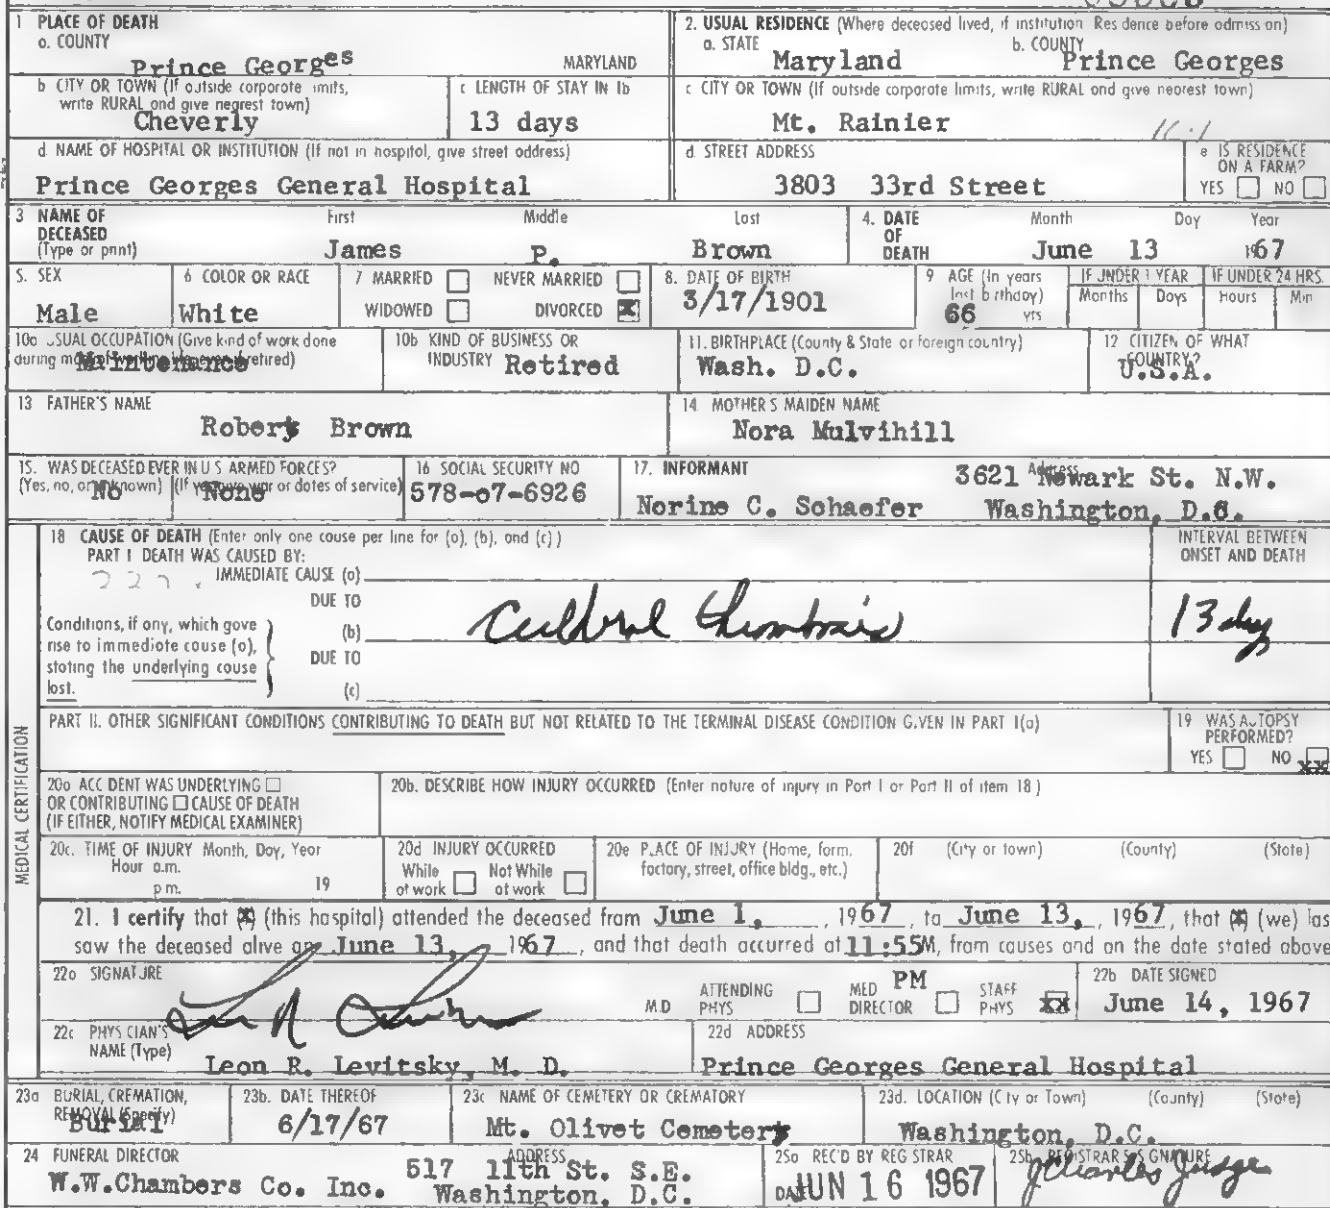 1 PLACE OF DEATH
a. COUNTY
Prince Georges
MARYLAND
2. USUAL RESIDENCE (Where deceased lived, if institution Residence before admission)
a. STATE
Maryland
b. COUNTY
Prince Georges
b CITY OR TOWN (If outside corporate limits, write RURAL and give nearest town)
Cheverly
c LENGTH OF STAY IN 1b
13 days
c CITY OR TOWN (If outside corporate limits, write RURAL and give nearest town)
Mt. Rainier
d NAME OF HOSPITAL OR INSTITUTION (If not in hospital, give street address)
Prince Georges General Hospital
d STREET ADDRESS
3803 33rd Street
e IS RESIDENCE ON A FARM?
YES NO
3 NAME OF DECEASED (Type or print)
First Middle Last
James P. Brown
4. DATE OF DEATH
Month Day Year
June 13 1967
5. SEX
Male
6 COLOR OR RACE
White
7 MARRIED NEVER MARRIED
WIDOWED DIVORCED X
8. DATE OF BIRTH
3/17/1901
9 AGE (In years last birthday)
66 yrs
IF UNDER 1 YEAR
Months Days
IF UNDER 24 HRS.
Hours Min
10a USUAL OCCUPATION (Give kind of work done during most of working life, even if retired)
Maintenance
10b KIND OF BUSINESS OR INDUSTRY
Retired
11. BIRTHPLACE (County & State or foreign country)
Wash. D.C.
12 CITIZEN OF WHAT COUNTRY?
U.S.A.
13 FATHER'S NAME
Robert Brown
14 MOTHER'S MAIDEN NAME
Nora Mulvihill
15. WAS DECEASED EVER IN U S ARMED FORCES?
(Yes, no, or unknown) (If yes give war or dates of service)
No None
16 SOCIAL SECURITY NO
578-07-6926
17. INFORMANT
Norine C. Schaefer
Address
3621 Newark St. N.W.
Washington, D.C.
18 CAUSE OF DEATH (Enter only one cause per line for (a), (b), and (c))
PART I DEATH WAS CAUSED BY:
IMMEDIATE CAUSE (a)
DUE TO
(b)
DUE TO
(c)
Conditions, if any, which gave rise to immediate cause (a), stating the underlying cause last.
Cerebral thrombosis
INTERVAL BETWEEN ONSET AND DEATH
13 days
PART II. OTHER SIGNIFICANT CONDITIONS CONTRIBUTING TO DEATH BUT NOT RELATED TO THE TERMINAL DISEASE CONDITION GIVEN IN PART I(a)
19 WAS AUTOPSY PERFORMED?
YES NO XX
MEDICAL CERTIFICATION
20a ACCIDENT WAS UNDERLYING
OR CONTRIBUTING CAUSE OF DEATH
(IF EITHER, NOTIFY MEDICAL EXAMINER)
20b. DESCRIBE HOW INJURY OCCURRED (Enter nature of injury in Part I or Part II of item 18)
20c. TIME OF INJURY Month, Day, Year
Hour a.m.
p m. 19
20d INJURY OCCURRED
While at work Not While at work
20e PLACE OF INJURY (Home, farm, factory, street, office bldg., etc.)
20f (City or town) (County) (State)
21. I certify that X (this hospital) attended the deceased from June 1, 1967, to June 13, 1967, that X (we) las
saw the deceased alive on June 13, 1967, and that death occurred at 11:55M, from causes and on the date stated above
22a SIGNATURE
M.D
ATTENDING PHYS
MED DIRECTOR
PM
STAFF PHYS XX
22b DATE SIGNED
June 14, 1967
22c PHYSICIAN'S NAME (Type)
Leon R. Levitsky, M. D.
22d ADDRESS
Prince Georges General Hospital
23a BURIAL, CREMATION, REMOVAL (Specify)
Burial
23b. DATE THEREOF
6/17/67
23c NAME OF CEMETERY OR CREMATORY
Mt. Olivet Cemetery
23d. LOCATION (City or Town) (County) (State)
Washington, D.C.
24 FUNERAL DIRECTOR
W.W.Chambers Co. Inc.
ADDRESS
517 11th St. S.E.
Washington, D.C.
25a REC'D BY REGISTRAR
DATE JUN 16 1967
25b REGISTRAR'S SIGNATURE
J Charles Judge